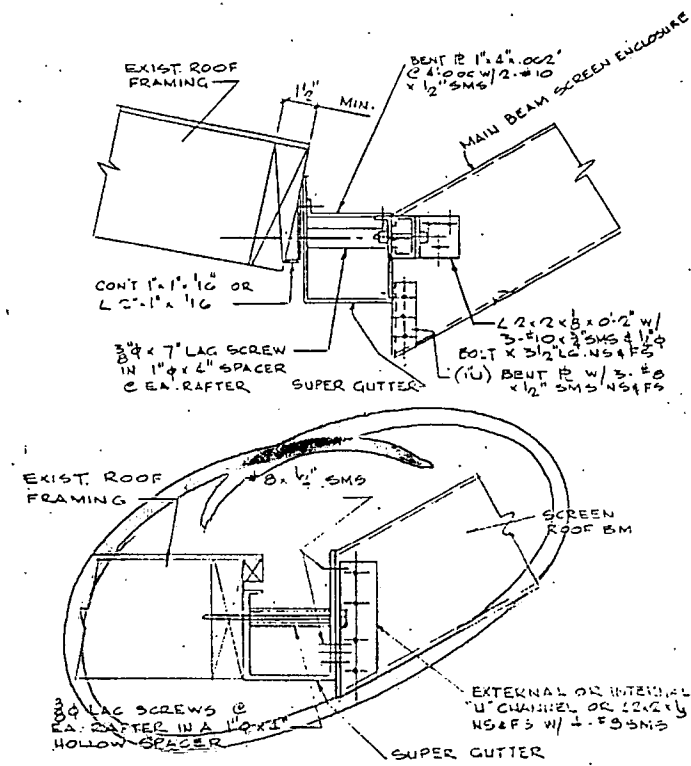 EXIST. ROOF
FRAMING
1½"
MIN.
BENT ℞ 1"x4"x.062"
@ 4'0 OC W/2-#10
x ½" SMS
MAIN BEAM SCREEN ENCLOSURE
CONT 1"x1"x 1/16" OR
L 2"x1"x 1/16
⅜"φ x 7" LAG SCREW
IN 1"φ x 4" SPACER
@ EA. RAFTER
SUPER GUTTER
L 2x2x⅛x0'-2" W/
3-#10x¾"SMS & ½"φ
BOLT x 3½"LG. NS&FS
BENT ℞ W/ 3-#8
x ½" SMS NS&FS
EXIST. ROOF
FRAMING
#8x½" SMS
SCREEN
ROOF BM
⅜φ LAG SCREWS @
EA. RAFTER IN A 1"φ x
HOLLOW SPACER
EXTERNAL OR INTERNAL
"U" CHANNEL OR
NS&FS W/
SUPER GUTTER